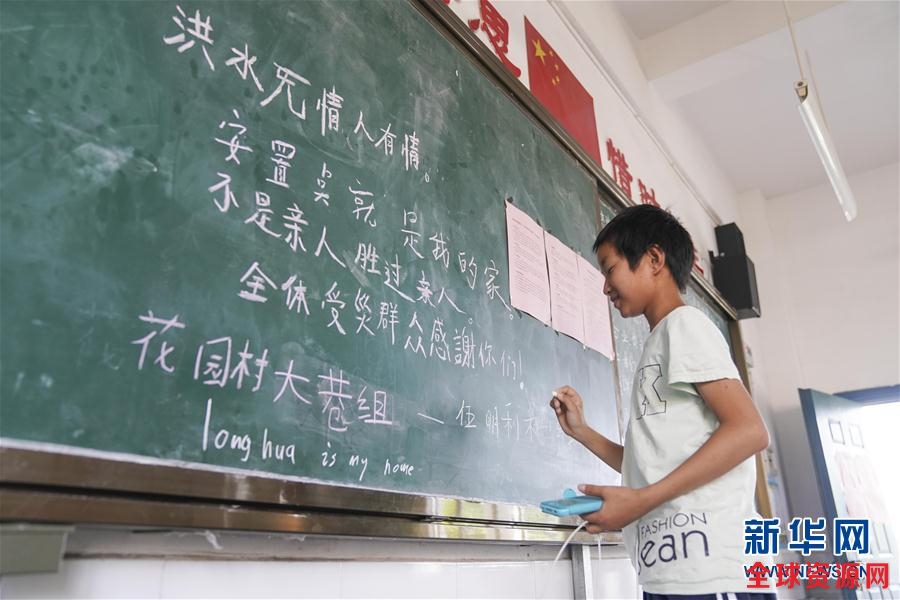 洪水无情人有情。
安置点就是我的家。
不是亲人胜过亲人。
全体受災群众感謝你们!
花园村大巷组 — 伍明利
longhua is my home
恩
惜
FASHION
Jean
新华网
WWW.NEWS.CN
全球资源网